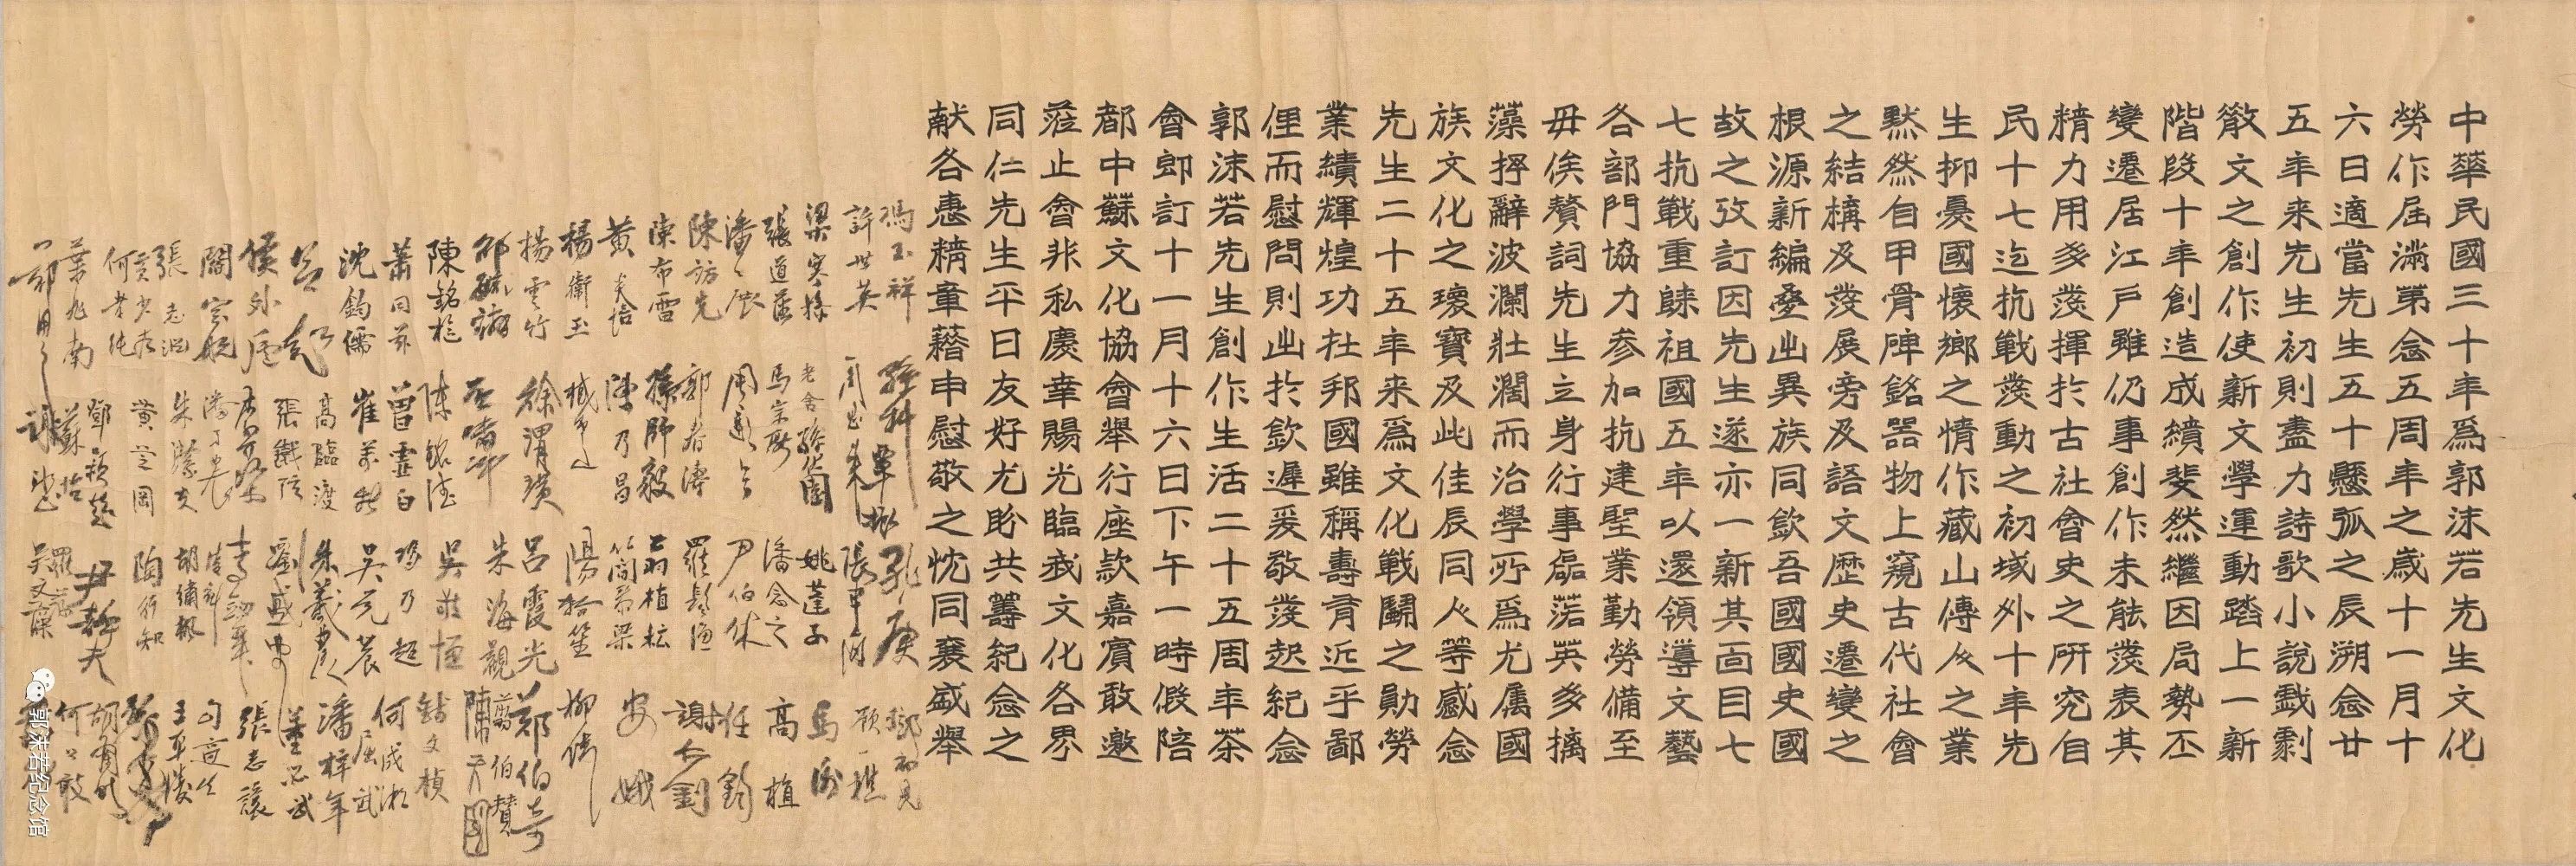 中華民國三十年爲郭沫若先生文化
勞作屆滿第念五周年之歲十一月十
六日適當先生五十懸弧之辰溯念廿
五年来先生初則盡力詩歌小說戲劇
散文之創作使新文學運動踏上一新
階段十年創造成績斐然繼因局勢丕
變遷居江戶雖仍事創作未能發表其
精力用多發揮於古社會史之研究自
民十七迄抗戰發動之初域外十年先
生抑憂國懷鄉之情作藏山傳人之業
黙然自甲骨碑銘器物上窺古代社會
之結構及發展旁及語文歷史遷變之
根源新編疊出異族同欽吾國國史國
故之攷訂因先生遂亦一新其面目七
七抗戰重歸祖國五年以還領導文藝
各部門協力参加抗建聖業勤勞備至
毋俟贅詞先生立身行事磊落英多摛
藻掞辭波瀾壯濶而治學所爲尤属國
族文化之瓌寶及此佳辰同人等感念
先生二十五年来爲文化戰鬭之勛勞
業績輝煌功在邦國雖稱壽育近乎鄙
俚而慰問則出於欽遲爰敬發起紀念
郭沫若先生創作生活二十五周年茶
會卽訂十一月十六日下午一時假陪
都中蘇文化協會舉行座款嘉賓敢邀
蒞止會非私慶幸賜光臨我文化各界
同仁先生平日友好尤盼共籌紀念之
献各惠精章藉申慰敬之忱同襄盛舉
馮玉祥 孫科 覃振 鄧初民
許世英 周恩来 張申府 顧一樵
梁寒操 老舍 孫伏園 姚蓬子 馬衡
張道藩 馬宗融 潘念之 高植
潘公展 周恩 尹伯休 任鈞
陳訪先 郭春濤 羅髫漁 謝
陳布雷 孫師毅 翁植耘 安娥
黄炎培 陳乃昌 簡
楊衛玉 臧 陽翰笙 柳倩
揚雲竹 徐渭璜 呂霞光 鄭伯奇
邵毓麟 石嘯冲 朱海觀 翦伯贊
陳銘樞 陳銘德 吳敬恒 錢文楨
蕭同茲 曾虛白 馮乃超 何成湘
沈鈞儒 崔萬秋 吳克農 屈武
呂超 高臨渡 朱義農 潘梓年
侯外廬 張鐵弦 劉盛亞 董必武
閻宗
張志 朱潔夫 胡繡楓 張志讓
黄少 黄芝岡 陶行知 王平陵
葉兆南 鄧穎超 尹静夫 胡
蘇怡 何公敢
郭沫若纪念馆